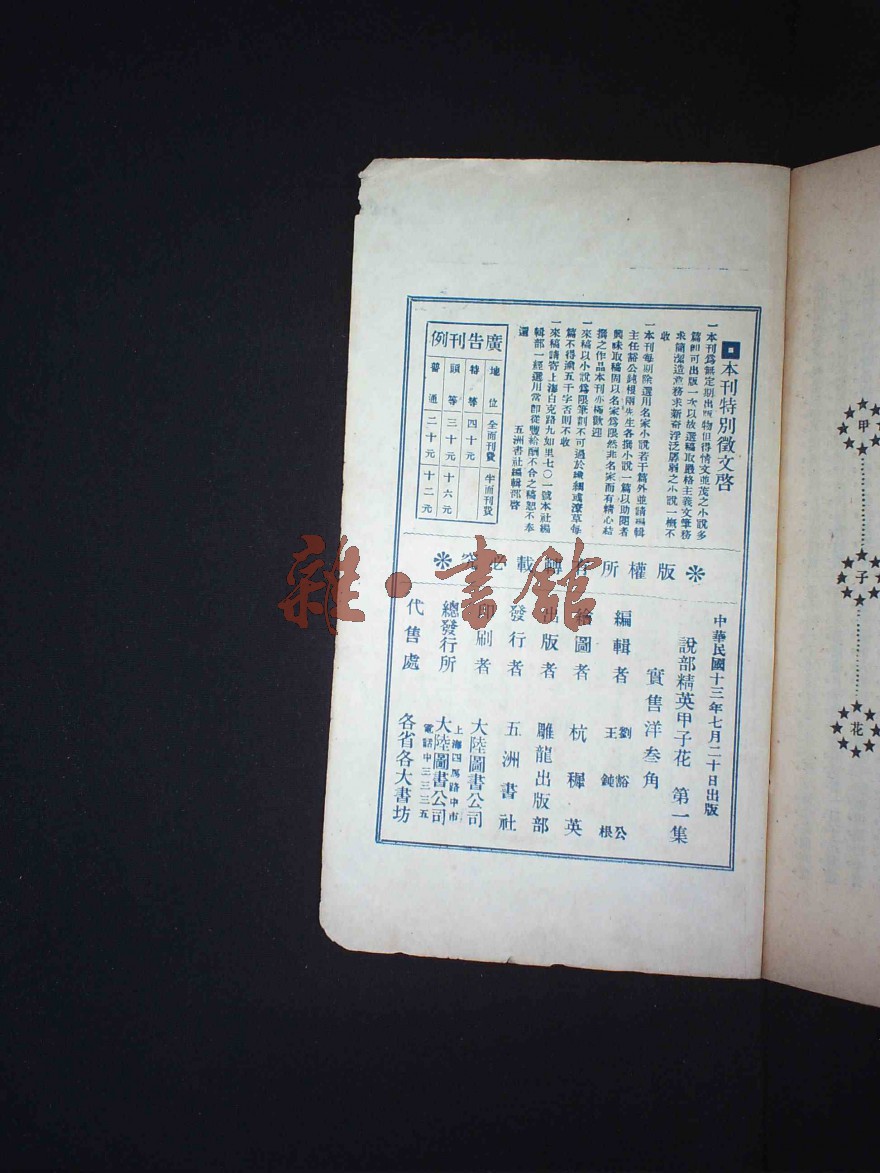 本刊特別徵文啓
一本刊爲無定期出版物但得情文並茂之小說多
篇即可出版一次以故選稿取嚴格主義文筆務
求簡潔造意務求新奇浮泛膚剝之小說一概不
收
一本刊每期除選用名家小說若干篇外並請編輯
主任豁公鈍根兩先生各撰小說一篇以助閱者
興味取稿固以名家爲限然非名家而有精心結
撰之作品本刊亦極歡迎
一來稿以小說爲限筆劃不可過於纖細或潦草每
篇不得逾五千字否則不收
一來稿請寄上海白克路九如里七〇一號本社編
輯部一經選用當即從豐給酬不合之稿恕不奉
還
五洲書社編輯部啓
廣告刊例
地位 全面刊費 半面刊費
特等 四十元
頭等 三十元 十六元
普通 二十元 十二元
版權所有轉載必究
中華民國十三年七月二十日出版
說部精英甲子花 第一集
實售洋叁角
編輯者 劉豁公 王鈍根
繪圖者 杭穉英
出版者 雕龍出版部
發行者 五洲書社
印刷者 大陸圖書公司
總發行所 上海四馬路中市 大陸圖書公司 電話中三三三五
代售處 各省各大書坊
甲
子
花
雜·書館